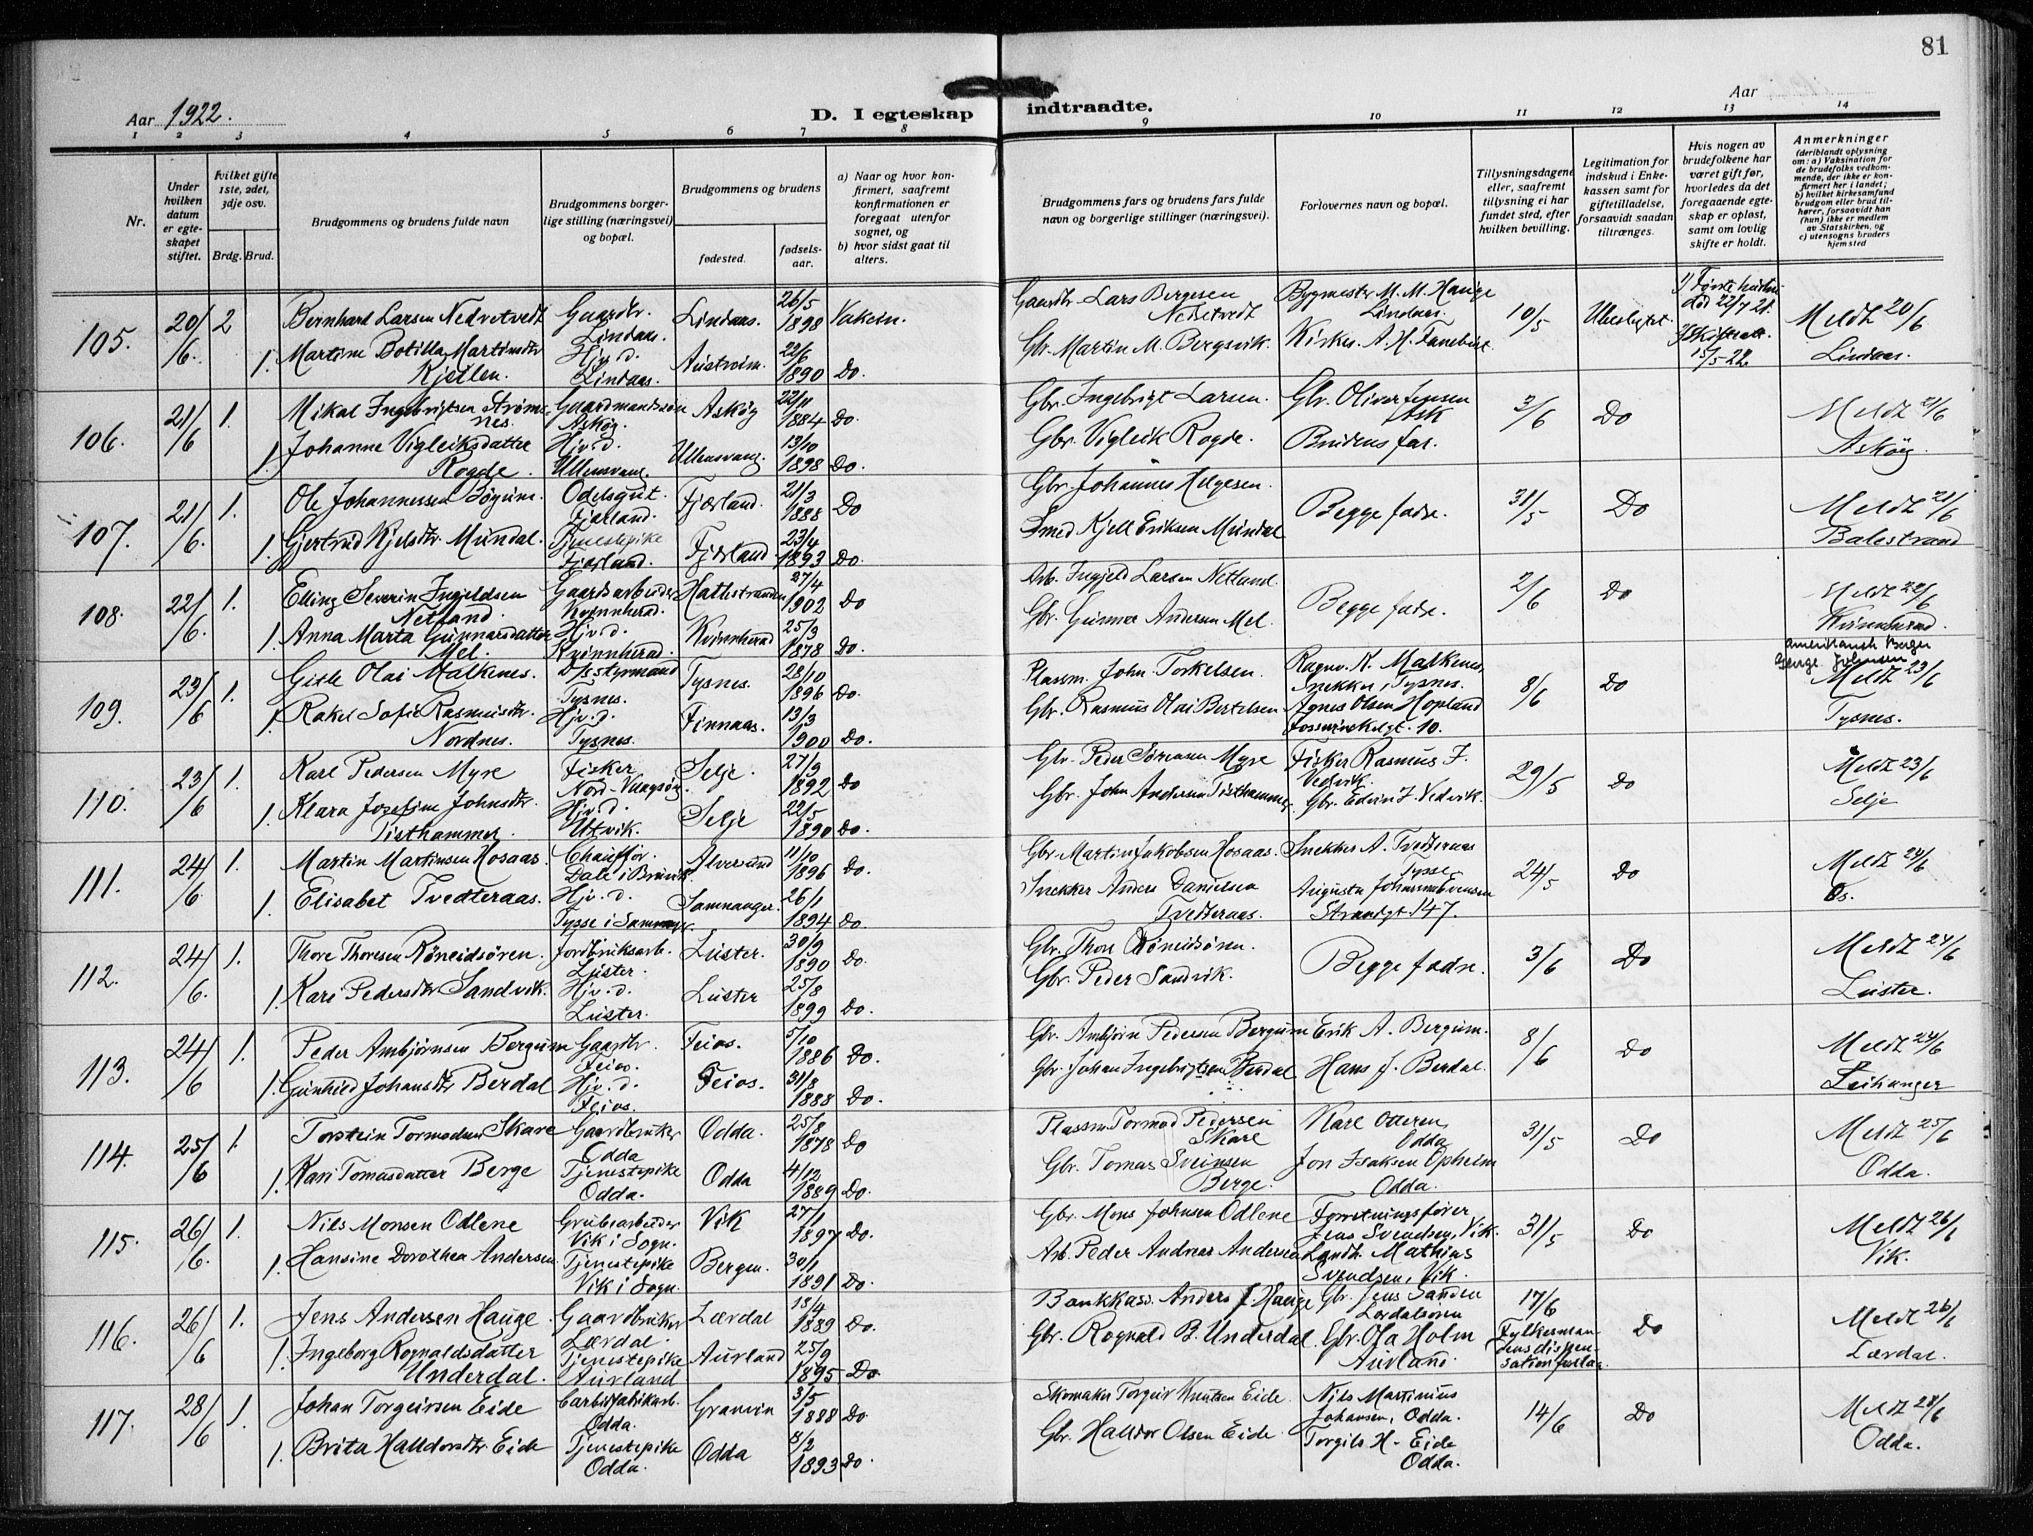 81
Aar 1922.
D. I egteskap indtraadte.
Aar
1 2 3 4 5 6 7 8 9 10 11 12 13 14
Nr.
Under hvilken datum er egteskapet stiftet.
Hvilket gifte 1ste, 2det, 3dje osv.
Brdg. Brud.
Brudgommens og brudens fulde navn
Brudgommens borgerlige stilling (næringsvei) og bopæl.
Brudgommens og brudens
fødested.
fødselsaar.
a) Naar og hvor konfirmert, saafremt konfirmationen er foregaat utenfor sognet, og
b) hvor sidst gaat til alters.
Brudgommens fars og brudens fars fulde navn og borgerlige stillinger (næringsvei).
Forlovernes navn og bopæl.
Tillysningsdagene eller, saafremt tillysning ei har fundet sted, efter hvilken bevilling.
Legitimation for indskud i Enkekassen samt for giftetilladelse, forsaavidt saadan tiltrænges.
Hvis nogen av brudefolkene har været gift før, hvorledes da det foregaaende egteskap er opløst, samt om lovlig skifte er holdt.
Anmerkninger
(deriblandt oplysning om: a) Vaksination for de brudefolks vedkommende, der ikke er konfirmert her i landet; b) hvilket kirkesamfund brudgom eller brud tilhører, forsaavidt han (hun) ikke er medlem av Statskirken, og c) utensogns bruders hjemsted
105. 20/6 2 Bernhard Larsen Nedretvedt Gaardbr. Lindaas. Lindaas. 26/5 1898 Gaardbr. Lars Bergesen Nedretvedt Bygmestr. M. M. Hauge Lindaas. 10/5 Ubeslegtet. død 22/7 21. 15/5-22. Meldt 20/6 Lindaas.
1. Martine Botilla Martinsdtr Kjetlen. Hj. d. Lindaas. Austrheim. 22/6 1890 Do. Gbr. Martin M. Bergsvik.
106. 21/6 1. Mikal Ingebrigtsen Strømsnes. Gaardmandssøn Askøy. Askøy 22/11 1884 Do. Gbr. Ingebrigt Larsen. Gbr. Oliver Jensen Ask 3/6 Do Meldt 21/6 Askøy.
1. Johanne Vigleiksdatter Rogde. Hjv. d. Ullensvang. Ullensvang. 13/10 1898 Do. Gbr. Vigleik Rogde. Brudens far.
107. 21/6. 1. Ole Johannessen Bøyum. Odelsgut. Fjærland. Fjærland. 21/3 1888 Do Gbr. Johannes Helgesen. Begge fædre. 31/5 Do Meldt 21/6 Balestrand
1. Gjertrud Kjelsdtr. Mundal. Tjenestepike Fjærland. Fjærland 23/4 1893 Do. Smed Kjell Eriksen Mundal
108. 22/6. 1. Elling Severin Ingjeldsen Netland. Gaardsarbeider Kvinnherad. Hathstranden 27/4 1902 Do Arb. Ingjeld Larsen Netland. Begge fædre. 2/6 Do Meldt 22/6 Kvinnherad.
1. Anna Marta Gunnarsdatter Mel. Hjv. d. Kvinnherad. Kvinnherad 25/3 1878 Do. Gbr. Gunnar Andersen Mel.
109. 23/6 1. Gisle Olai Malkenes. Dsstyrmand Tysnes. Tysnes. 28/10 1896 Do. Plassm. John Torkelsen. Ragnv. K. Malkenes, Snekker, Tysnes. 8/6 Do amerikansk Borger George Johnsen Meldt 23/6 Tysnes.
1. Rakel Sofie Rasmusdtr. Nordnes. Hjv. d. Tysnes. Finnaas. 13/3 1900 Do. Gbr. Rasmus Olai Bertelsen Agnes Olsen Hopland
110. 23/6 1. Karl Pedersen Myre Fisker Nord-Vaagsøy. Selje. 27/9 1892 Do Gbr. Peder Sørensen Myre Fisker Rasmus J. Vedvik. 29/5 Do Meldt 23/6 Selje
1. Klara Josefine Johnsdtr. Tisthammer. Hjv. d. Utvik. Selje 22/5 1890 Do. Gbr. John Andersen Tisthammer. Gbr. Edvin J. Vedvik.
111. 24/6. 1. Martin Martinsen Hosaas. Chauffør. Dale i Bruvik. Alversund 11/10 1896 Do. Gbr. Martin Jakobsen Hosaas. Snekker A. Tvedteraas Tysse 24/5 Do Meldt 24/6 Os.
1. Elisabet Tvedteraas. Hjv. d. Tysse i Samnanger. Samnanger. 26/1 1894 Do. Snekker Anders Danielsen Tvedteraas. Augusta Johanna Evensen Strandgt 147.
112. 24/6. 1. Thore Thoresen Røneidsøren. Jordbruksarb. Luster. Luster. 30/9 1890 Do. Gbr. Thore Røneidsøren. Begge fædre. 3/6 Do Meldt 24/6 Luster.
1. Kari Pedersdtr Sandvik. Hjv. d. Luster. Luster 25/8 1899 Do. Gbr. Peder Sandvik.
113. 24/6 1. Peder Ambjørnsen Bergum Gaardbr. Feios. Feios. 5/10 1886 Do. Gbr. Ambjørn Pedersen Bergum Erik A. Bergum. 8/6 Do Meldt 24/6 Leikanger
1. Gunhild Johansdtr Berdal Hjv. d. Feios. Feios. 31/8 1888 Do. Gbr. Johan Ingebrigtsen Berdal Hans J. Berdal.
114. 25/6 1. Torstein Tormodsen Skare Gaardbruker Odda Odda. 25/8 1878 Do Plassm Tormod Pedersen Skare Karl Otteren, Odda 31/5 Do Meldt 25/6 Odda.
1. Kari Tomasdatter Berge Tjenestepike Odda. Odda 4/12 1889 Do. Gbr. Tomas Sveinsen Berge. Jon Isaksen Opheim Odda.
115. 26/6. 1. Nils Monsen Odlene Grubearbeider Vik i Sogn. Vik 27/1 1897 Do. Gbr. Mons Johnsen Odlene Forretningsfører Jens Svendsen, Vik. 31/5 Do Meldt 26/6 Vik.
1. Hansine Dorothea Andersen. Tjenestepike Vik i Sogn. Bergen. 30/1 1891 Do. Arb. Peder Andreas Andersen Landh. Mathias Svendsen, Vik.
116. 26/6 1. Jens Andersen Hauge. Gaardbruker Lærdal. Lærdal 13/4 1889 Do. Bankkass. Anders J. Hauge Gbr. Jens Sanden Lærdalsøren 17/6 Fylkesmandens dispensation forlaa. Do Meldt 26/6 Lærdal.
1. Ingeborg Rognaldsdatter Underdal. Tjenestepike Aurland Aurland 25/9 1895 Do Gbr. Rognald B. Underdal. Gbr. Ola Holm Aurland.
117. 28/6 1. Johan Torgeirsen Eide Carbidfabrikarb. Odda. Granvin 3/5 1888 Do. Skomaker Torgeir Knutsen Eide. Nils Martinius Johansen, Odda. 14/6 Do Meldt 28/6 Odda.
1. Brita Halldorsdtr. Eide Tjenestepike Odda. Odda 8/2 1893 Do. Gbr. Halldor Olsen Eide. Torgils H. Eide Odda.